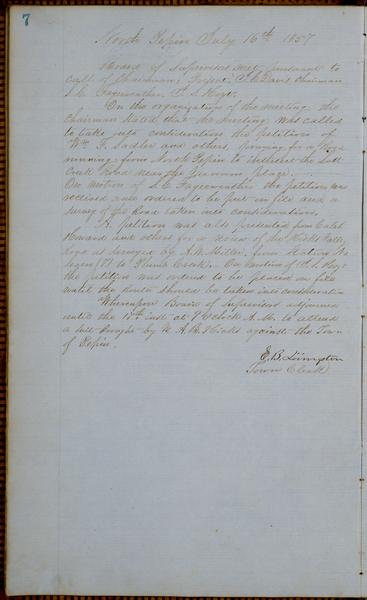 7
North Pepin July 16th 1857
Board of Supervisors met pursuant to
call of Chairman, A. C. Davis Chairman
S. C. Fayerweather, P. S. Hoyt.
On the organization of the meeting the
Chairman stated that the meeting was called
to take into consideration the petition of
Wm F. Sadler and others, praying for a
running from North Pepin to intersect the
Creek Road near the place.
On motion of S. C. Fayerweather the petition was
received and ordered to be put on file and a
survey of the Road taken into consideration.
A petition was also presented from Caleb
Howard and others for a review of the Hicks
road as surveyed by A. W. Miller, from Station No
(17) to Creek. On motion of P. S. Hoyt
the petition was ordered to be placed on file
until the same should be taken into consideration
Whereupon Board of Supervisors adjourned
until the 18th inst at 9 O'clock A.M. to attend
a suit brought by W. A. B. Hicks against the Town
of Pepin.
E. B. Livingston
Town Clerk